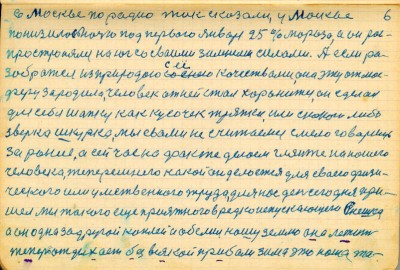 6
в Москве по радио так сказали, у Москве
понизилось ночью под первого январ 25 % мороза, а он рас
простронялу на юго своими зимними силами. А если ра
зобратся из природою с ей своею качествами, она эту атмос
феру зародила, человек от ней стал хоронится, он сделал
для себя шапку как кусочек тряпки, или скокого либо
зверка шкурка, мы свали не считаем, смело говорим
за ранне, а сейчас на факте делаем гляньте на нашего
человека, теперешнего какой он делается для своего физи
ческого или умственного труда, для нас ден сегодня при
шел мы такого еще приятного вредно испускающего Снешка
а он одна за другой каплей и обелили нашу землю она лежит
теперь отдыхает без всякой прибыли зимя это наша та-